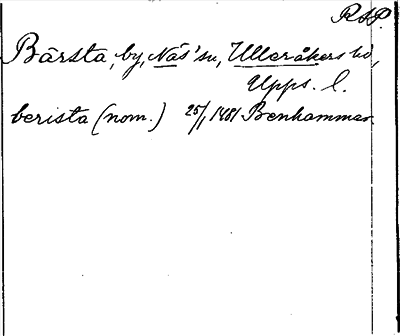 R A P.
Bärsta, by, Näs' sn, Ulleråkers hd,
Upps. l.
berista (nom.) 25/1 1481 Benhammar.